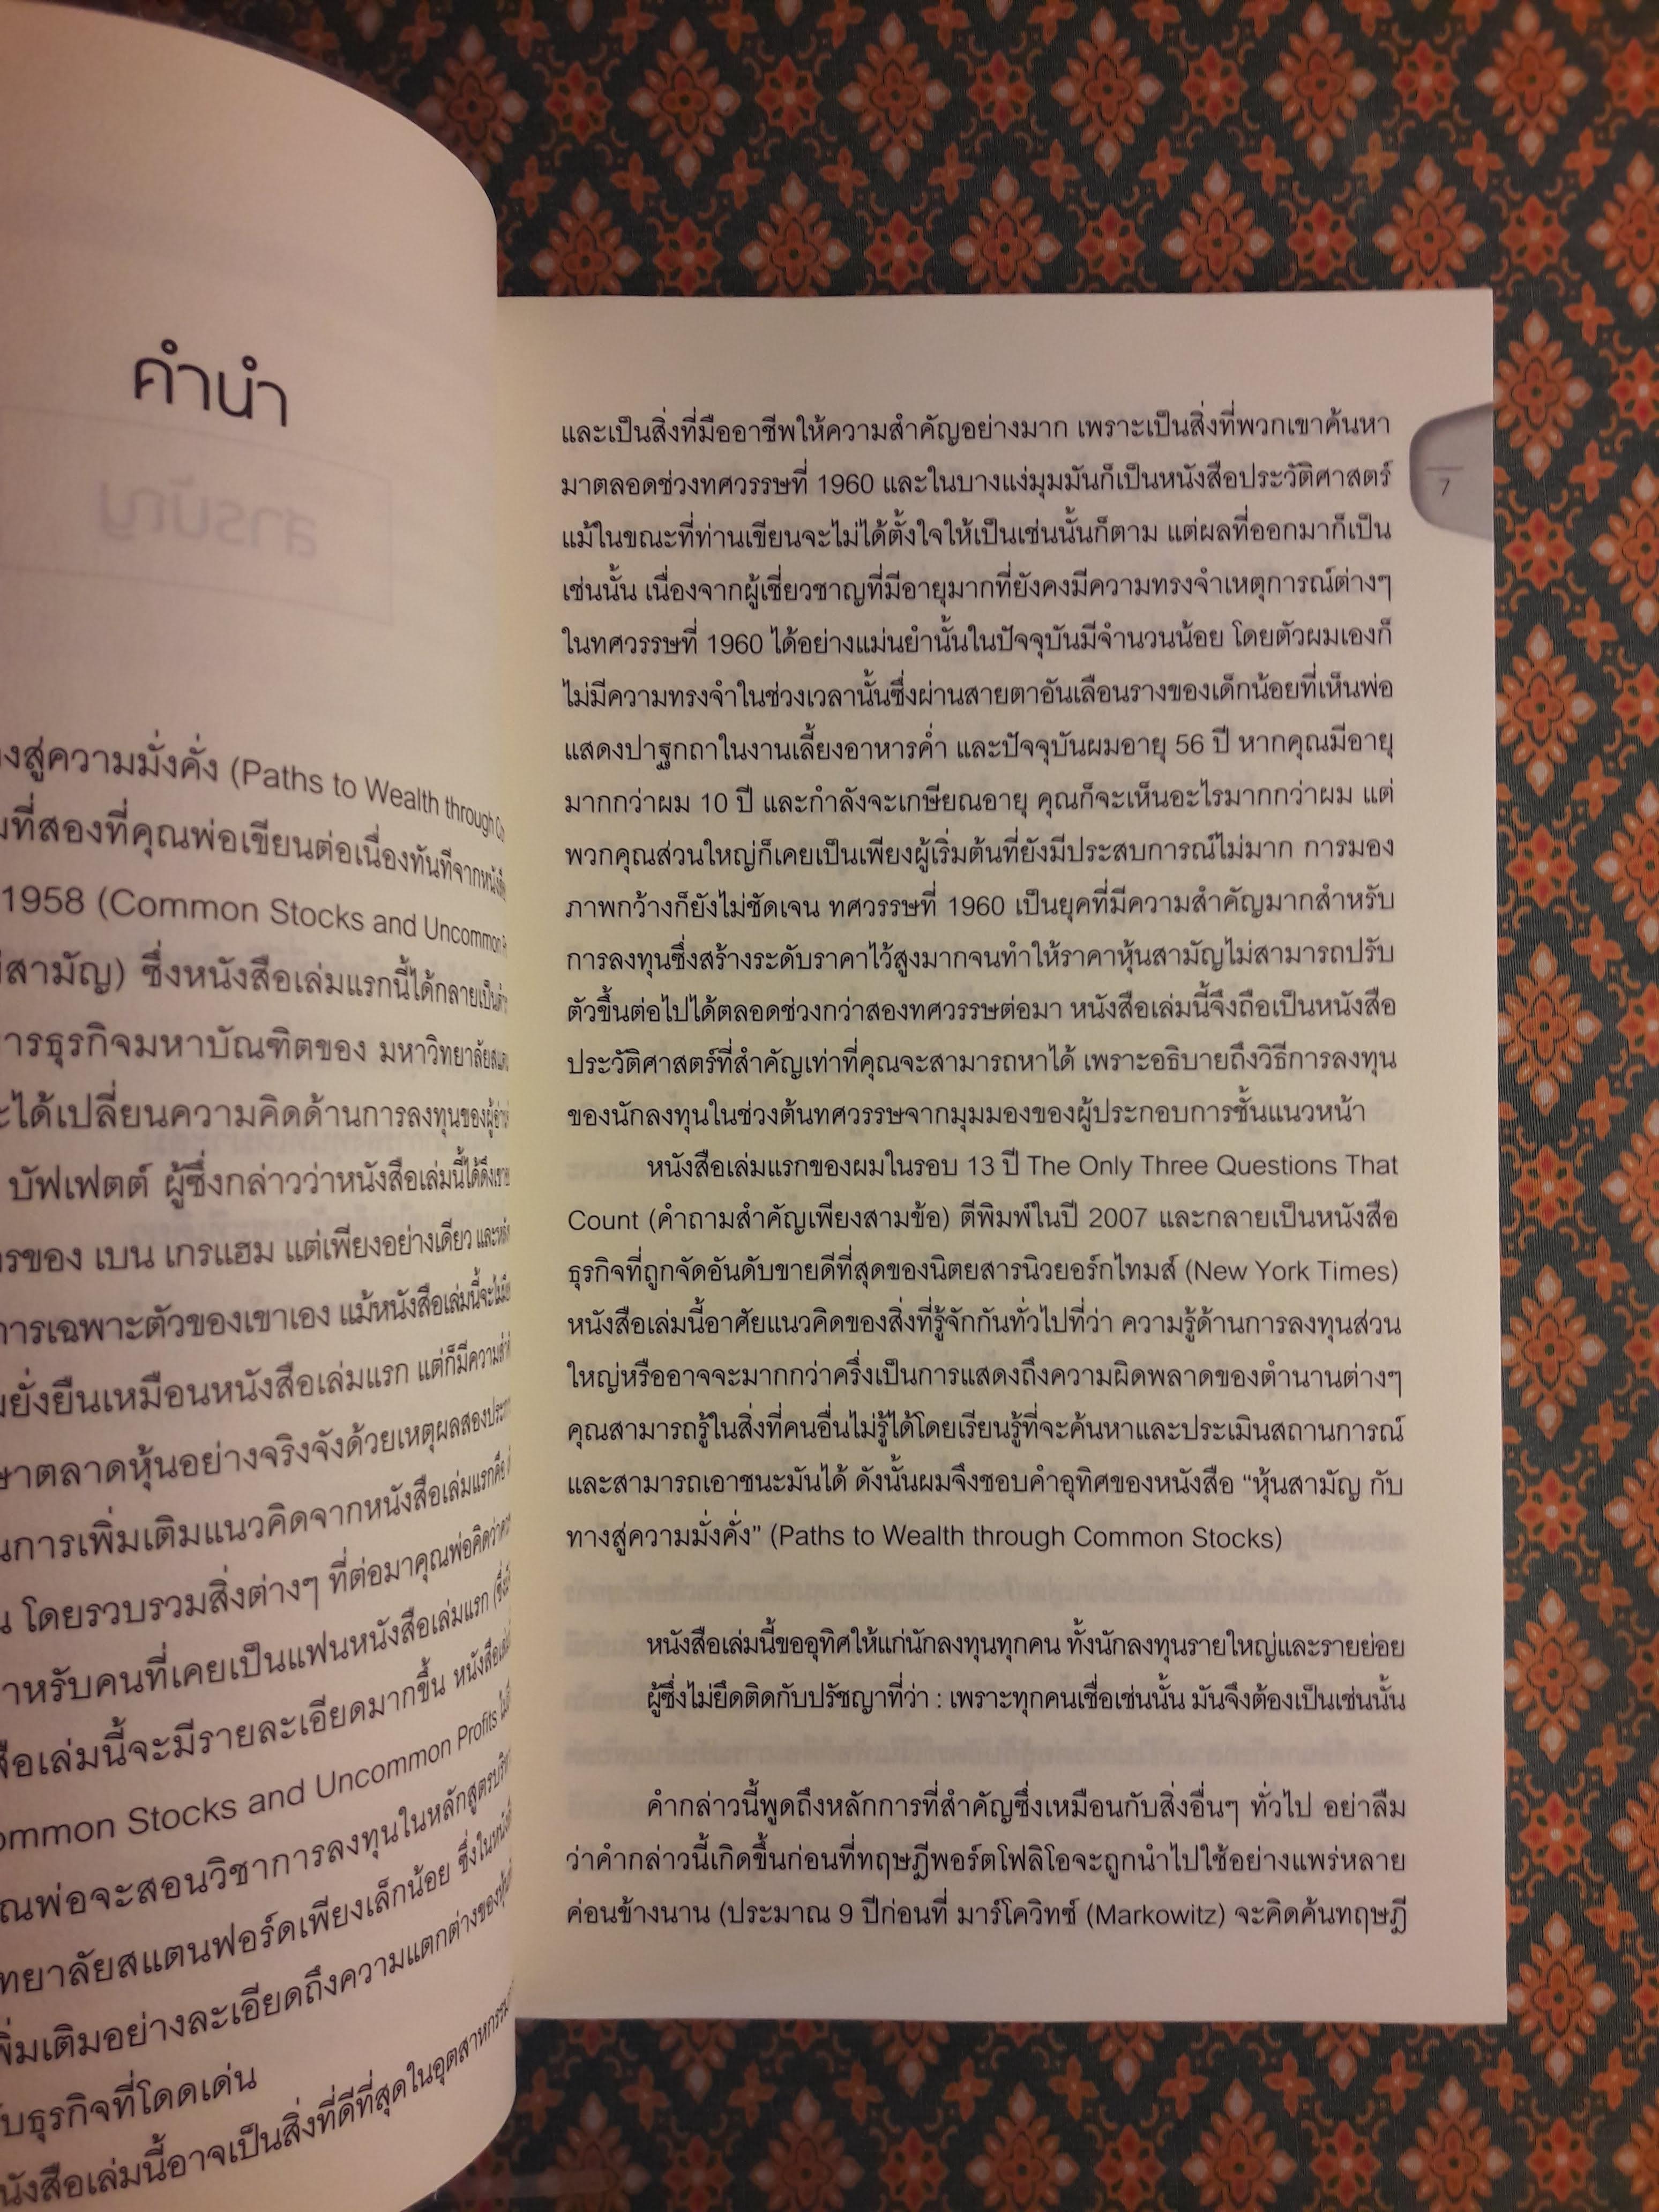 คำนำ
สารบัญ
งสู่ความมั่งคั่ง (Paths to Wealth through
ที่สองที่คุณพ่อเขียนต่อเนื่องทันทีจากหนังสือ
1958 (Common Stocks and Uncommon
สามัญ) ซึ่งหนังสือเล่มแรกนี้ได้กลายเป็น
ารธุรกิจมหาบัณฑิตของ มหาวิทยาลัย
ะได้เปลี่ยนความคิดด้านการลงทุนของ
บัฟเฟตต์ ผู้ซึ่งกล่าวว่าหนังสือเล่มนี้ได้ดึงเขา
ารของ เบน เกรแฮม แต่เพียงอย่างเดียว และ
การเฉพาะตัวของเขาเอง แม้หนังสือเล่มนี้จะ
ยั่งยืนเหมือนหนังสือเล่มแรก แต่ก็มีความ
ษาตลาดหุ้นอย่างจริงจังด้วยเหตุผลสอง
นการเพิ่มเติมแนวคิดจากหนังสือเล่มแรก
น โดยรวบรวมสิ่งต่างๆ ที่ต่อมาคุณพ่อคิดว่า
าหรับคนที่เคยเป็นแฟนหนังสือเล่มแรก
สือเล่มนี้จะมีรายละเอียดมากขึ้น
ommon Stocks and Uncommon Profits
ณพ่อจะสอนวิชาการลงทุนในหลักสูตร
ทยาลัยสแตนฟอร์ดเพียงเล็กน้อย ซึ่งใน
พิ่มเติมอย่างละเอียดถึงความแตกต่างของ
ับธุรกิจที่โดดเด่น
นังสือเล่มนี้อาจเป็นสิ่งที่ดีที่สุดในอุตสาหกรรม
7
และเป็นสิ่งที่มืออาชีพให้ความสำคัญอย่างมาก เพราะเป็นสิ่งที่พวกเขาค้นหา
มาตลอดช่วงทศวรรษที่ 1960 และในบางแง่มุมมันก็เป็นหนังสือประวัติศาสตร์
แม้ในขณะที่ท่านเขียนจะไม่ได้ตั้งใจให้เป็นเช่นนั้นก็ตาม แต่ผลที่ออกมาก็เป็น
เช่นนั้น เนื่องจากผู้เชี่ยวชาญที่มีอายุมากที่ยังคงมีความทรงจำเหตุการณ์ต่างๆ
ในทศวรรษที่ 1960 ได้อย่างแม่นยำนั้นในปัจจุบันมีจำนวนน้อย โดยตัวผมเองก็
ไม่มีความทรงจำในช่วงเวลานั้นซึ่งผ่านสายตาอันเลือนรางของเด็กน้อยที่เห็นพ่อ
แสดงปาฐกถาในงานเลี้ยงอาหารค่ำ และปัจจุบันผมอายุ 56 ปี หากคุณมีอายุ
มากกว่าผม 10 ปี และกำลังจะเกษียณอายุ คุณก็จะเห็นอะไรมากกว่าผม แต่
พวกคุณส่วนใหญ่ก็เคยเป็นเพียงผู้เริ่มต้นที่ยังมีประสบการณ์ไม่มาก การมอง
ภาพกว้างก็ยังไม่ชัดเจน ทศวรรษที่ 1960 เป็นยุคที่มีความสำคัญมากสำหรับ
การลงทุนซึ่งสร้างระดับราคาไว้สูงมากจนทำให้ราคาหุ้นสามัญไม่สามารถปรับ
ตัวขึ้นต่อไปได้ตลอดช่วงกว่าสองทศวรรษต่อมา หนังสือเล่มนี้จึงถือเป็นหนังสือ
ประวัติศาสตร์ที่สำคัญเท่าที่คุณจะสามารถหาได้ เพราะอธิบายถึงวิธีการลงทุน
ของนักลงทุนในช่วงต้นทศวรรษจากมุมมองของผู้ประกอบการชั้นแนวหน้า
หนังสือเล่มแรกของผมในรอบ 13 ปี The Only Three Questions That
Count (คำถามสำคัญเพียงสามข้อ) ตีพิมพ์ในปี 2007 และกลายเป็นหนังสือ
ธุรกิจที่ถูกจัดอันดับขายดีที่สุดของนิตยสารนิวยอร์กไทมส์ (New York Times)
หนังสือเล่มนี้อาศัยแนวคิดของสิ่งที่รู้จักกันทั่วไปที่ว่า ความรู้ด้านการลงทุนส่วน
ใหญ่หรืออาจจะมากกว่าครึ่งเป็นการแสดงถึงความผิดพลาดของตำนานต่างๆ
คุณสามารถรู้ในสิ่งที่คนอื่นไม่รู้ได้โดยเรียนรู้ที่จะค้นหาและประเมินสถานการณ์
และสามารถเอาชนะมันได้ ดังนั้นผมจึงชอบคำอุทิศของหนังสือ "หุ้นสามัญ กับ
ทางสู่ความมั่งคั่ง" (Paths to Wealth through Common Stocks)
หนังสือเล่มนี้ขออุทิศให้แก่นักลงทุนทุกคน ทั้งนักลงทุนรายใหญ่และรายย่อย
ผู้ซึ่งไม่ยึดติดกับปรัชญาที่ว่า : เพราะทุกคนเชื่อเช่นนั้น มันจึงต้องเป็นเช่นนั้น
คำกล่าวนี้พูดถึงหลักการที่สำคัญซึ่งเหมือนกับสิ่งอื่นๆ ทั่วไป อย่าลืม
ว่าคำกล่าวนี้เกิดขึ้นก่อนที่ทฤษฎีพอร์ตโฟลิโอจะถูกนำไปใช้อย่างแพร่หลาย
ค่อนข้างนาน (ประมาณ 9 ปีก่อนที่ มาร์โควิทซ์ (Markowitz) จะคิดค้นทฤษฎี